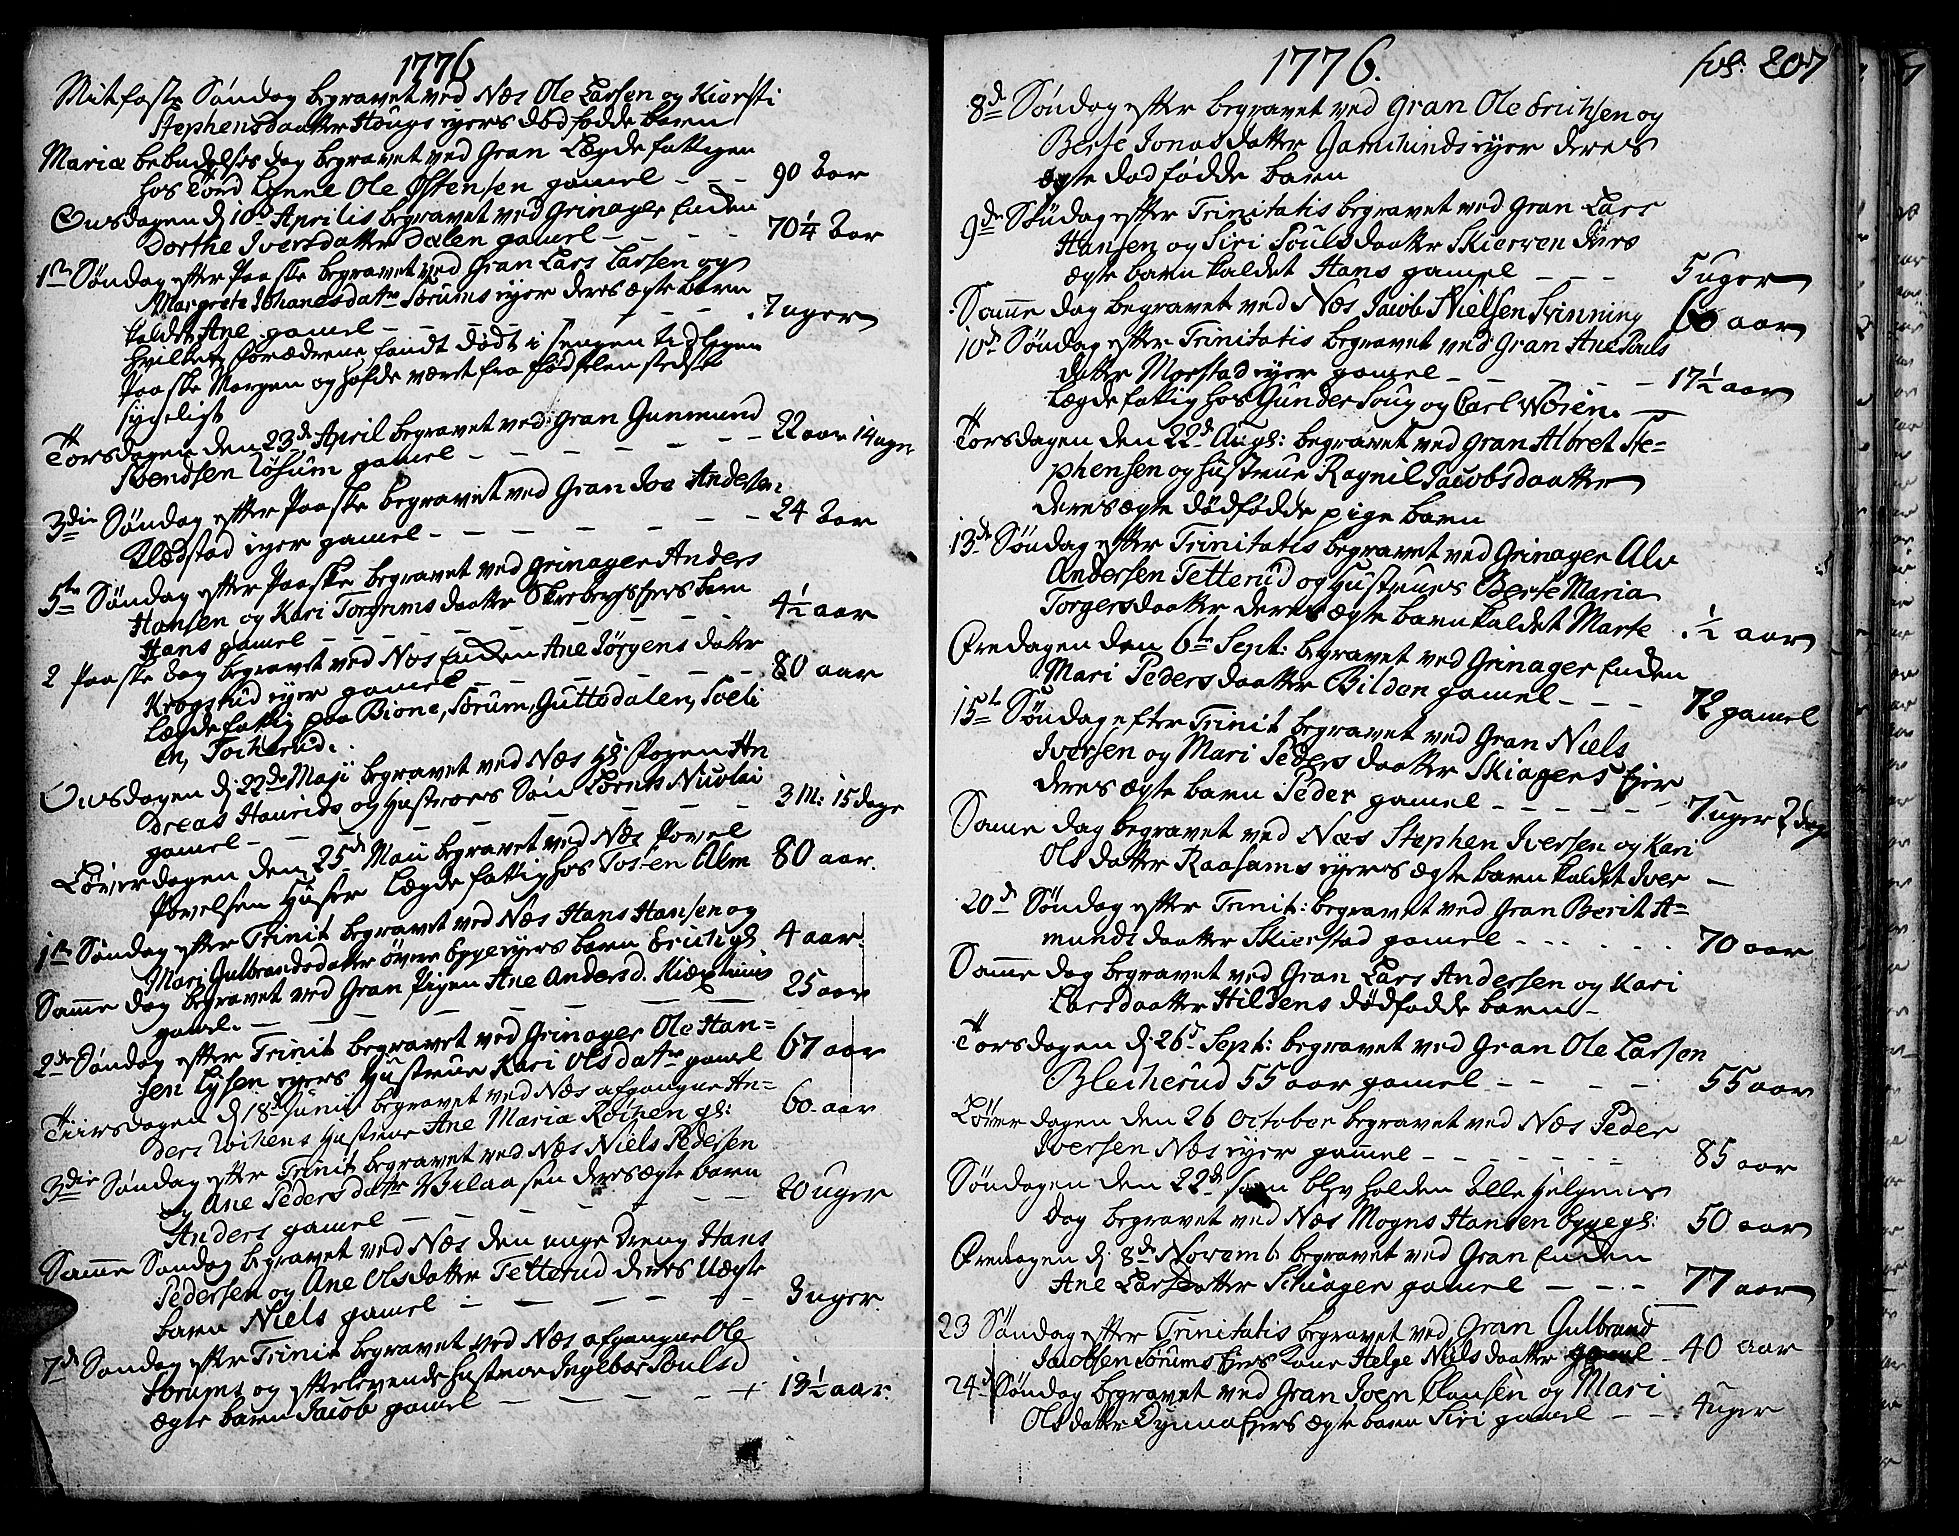 1776
Mitfaste Søndag begravet ved Næs Ole Larsen og Kiersti
Stephensdaatter Hougs iyers dødfødde barn
Mariæ bebudelses dag begravet ved Gran Lægdefattigen
hos Tord Lynne Ole Østensen gamel - - - 90 Aar
Onsdagen d: 10de Aprilis begravet ved Grinager Enden
Dorthe Iversdatter Dalen gamel - - - - 70 1/4 Aar
1ste Søndag efter Paaske begravet ved Gran Lars Larsen og
Margrete Johanesdatr Sørums iyer deres ægte barn
kaldet Ane gamel - - - - 7 uger
hvilket forældrene fandt dødt i sengen tidlegen
Paaske Morgen og hafde været fra fødselen stedse
sygeligt
Torsdagen den 23de April begravet ved Gran Gunmund
Svendsen Løsum gamel - - - - - - 22 aar 14 uger
3die Søndag efter Paaske begravet ved Gran Iver Andersen
Klædstad iyer gamel - - - - - - - 24 Aar
5te Søndag efter Paaske begravet ved Grinager Anders
Hansen og Kari Torgrims daatter Skrebergs iers barn
Hans gamel - - - - - - - 4 1/2 aar
2 Paaske dag begravet ved Næs Enden Ane Jørgens datter
Krogstud iyer gamel - - - - - 80 aar
Lægdefattig paa Bione, Sørum, Guttodalen, Soeli
en, Tocherud.
Onsdagen d: 22de Maji begravet ved Næs Hr: Fogen An
dreas Hanrids og Hustroes Søn Lorents Nicolai
gamel - - - - - 3 M: 15 dage
Løverdagen den 25de Maii begravet ved Næs Povel
Povelsen Huser Lægdefattig hos Tosten Alm 80 aar.
1ste Søndag efter Trinit begravet ved Næs Hans Hansen og
Mari Gulbrandsdatter øvre Eggeeyers barn Erich gl: 4 aar
Samme dag begravet ved Gran Pigen Ane Andersd. Kiøstuius
gamel. - - - - - - 25 aar
2den Søndag efter Trinit begravet ved Grinager Ole Han=
sen Lysen iyers Hustrue Kari Olsdatr gamel 67 aar
Tiirsdagen d: 18de Junii begravet ved Næs afgangne An=
ders Roihens Hustrue Ane Maria Roihen gl: 60 aar
3die Søndag efter Trinit begravet ved Næs Niels Pedersen
og Ane Peders datr Vilaasen deres ægte barn
Anders gamel - - - - - - 20 uger
Samme Søndag begravet ved Næs den unge Dreng Hans
Pedersen og Ane Olsdatter Tetterud deres Uægte
barn Niels gamel - - - - - - 3 uger.
7de Søndag efter Trinit begravet ved Næs afgangne Ole
Sorums og efterlevende hustrue Ingebor Poulsd
ægte barn Jacob gamel - - - - + 13 1/2 aar.
1776.
fol. 207
8de Søndag efter begravet ved Gran Ole Erichsen og
Berte Jonasdatter Gamelunds iyer deres
ægte dødfødde barn
9de Søndag efter Trinitatis begravet ved Gran Lars
Hansen og Siri Pouls daatter Skierven deres
ægte barn kaldet Hans gamel - - - 5 uger
Samme dag begravet ved Næs Jacob Nielsen Svinning 60 aar
10de Søndag efter Trinitatis begravet ved Gran Ane Pouls
datter Morstad iyer gamel - - - - - 17 1/2 aar
Lægdefattig hos Gunder Soug og Carl Wøien. -
Torsdagen den 22de Augs: begravet ved Gran Albret Ste=
phensen og hustrue Ragnil Jacobsdaatter
deres ægte dødfødde pige barn
13de Søndag efter Trinitatis begravet ved Grinager Alv
Andersen Tetterud og Hustrues Berte Maria
Torgersdaatter deres ægte barn kaldet Marte 1/2 aar
Fredagen den 6te Sept: begravet ved Grinager Enden
Mari Pedersdaatter Bilden gamel - - - 72 gamel
15de Søndag efter Trinit begravet ved Gran Niels
Iversen og Mari Peders daatter Skiagers Eier
deres ægte barn Peder gamel - - - - - 7 uger 2 dage
Same dag begravet ved Næs Stephen Iversen og Kari
Olsdatter Raasums iyers ægte barn kaldet Iver -
20de Søndag efter Trinit: begravet ved Gran Berit A=
munds daatter Skierstad gamel - - - - - - 70 aar
Samme dag begravet ved Gran Lars Andersen og Kari
Larsdaatter Hildens dødfødde barn -
Torsdagen d: 26de Sept: begravet ved Gran Ole Larsen
Blecherud 55 aar gamel - - - - 55 aar
Løverdagen den 26 October begravet ved Næs Peder
Iversen Næs iyer gamel - - - - - - - 85 aar
Søndagen den 22de som blev holden Alle Helgens
dag begravet ved Næs Mogns Hansen Egge gl: 50 aar
Fredagen d: 8de Novemb begravet ved Gran Enden
Ane Larsdatter Schiager gamel - - - - 77 aar
23 Søndag efter Trinitatis begravet ved Gran Gulbrand
Jacobsen Sørums Eiers Kone Helge Niels daatter gamel 40 aar
24de Søndag begravet ved Gran Joen Clausen og Mari
Olsdatter Dynna Eiers ægte barn Siri gamel - - 4 uger